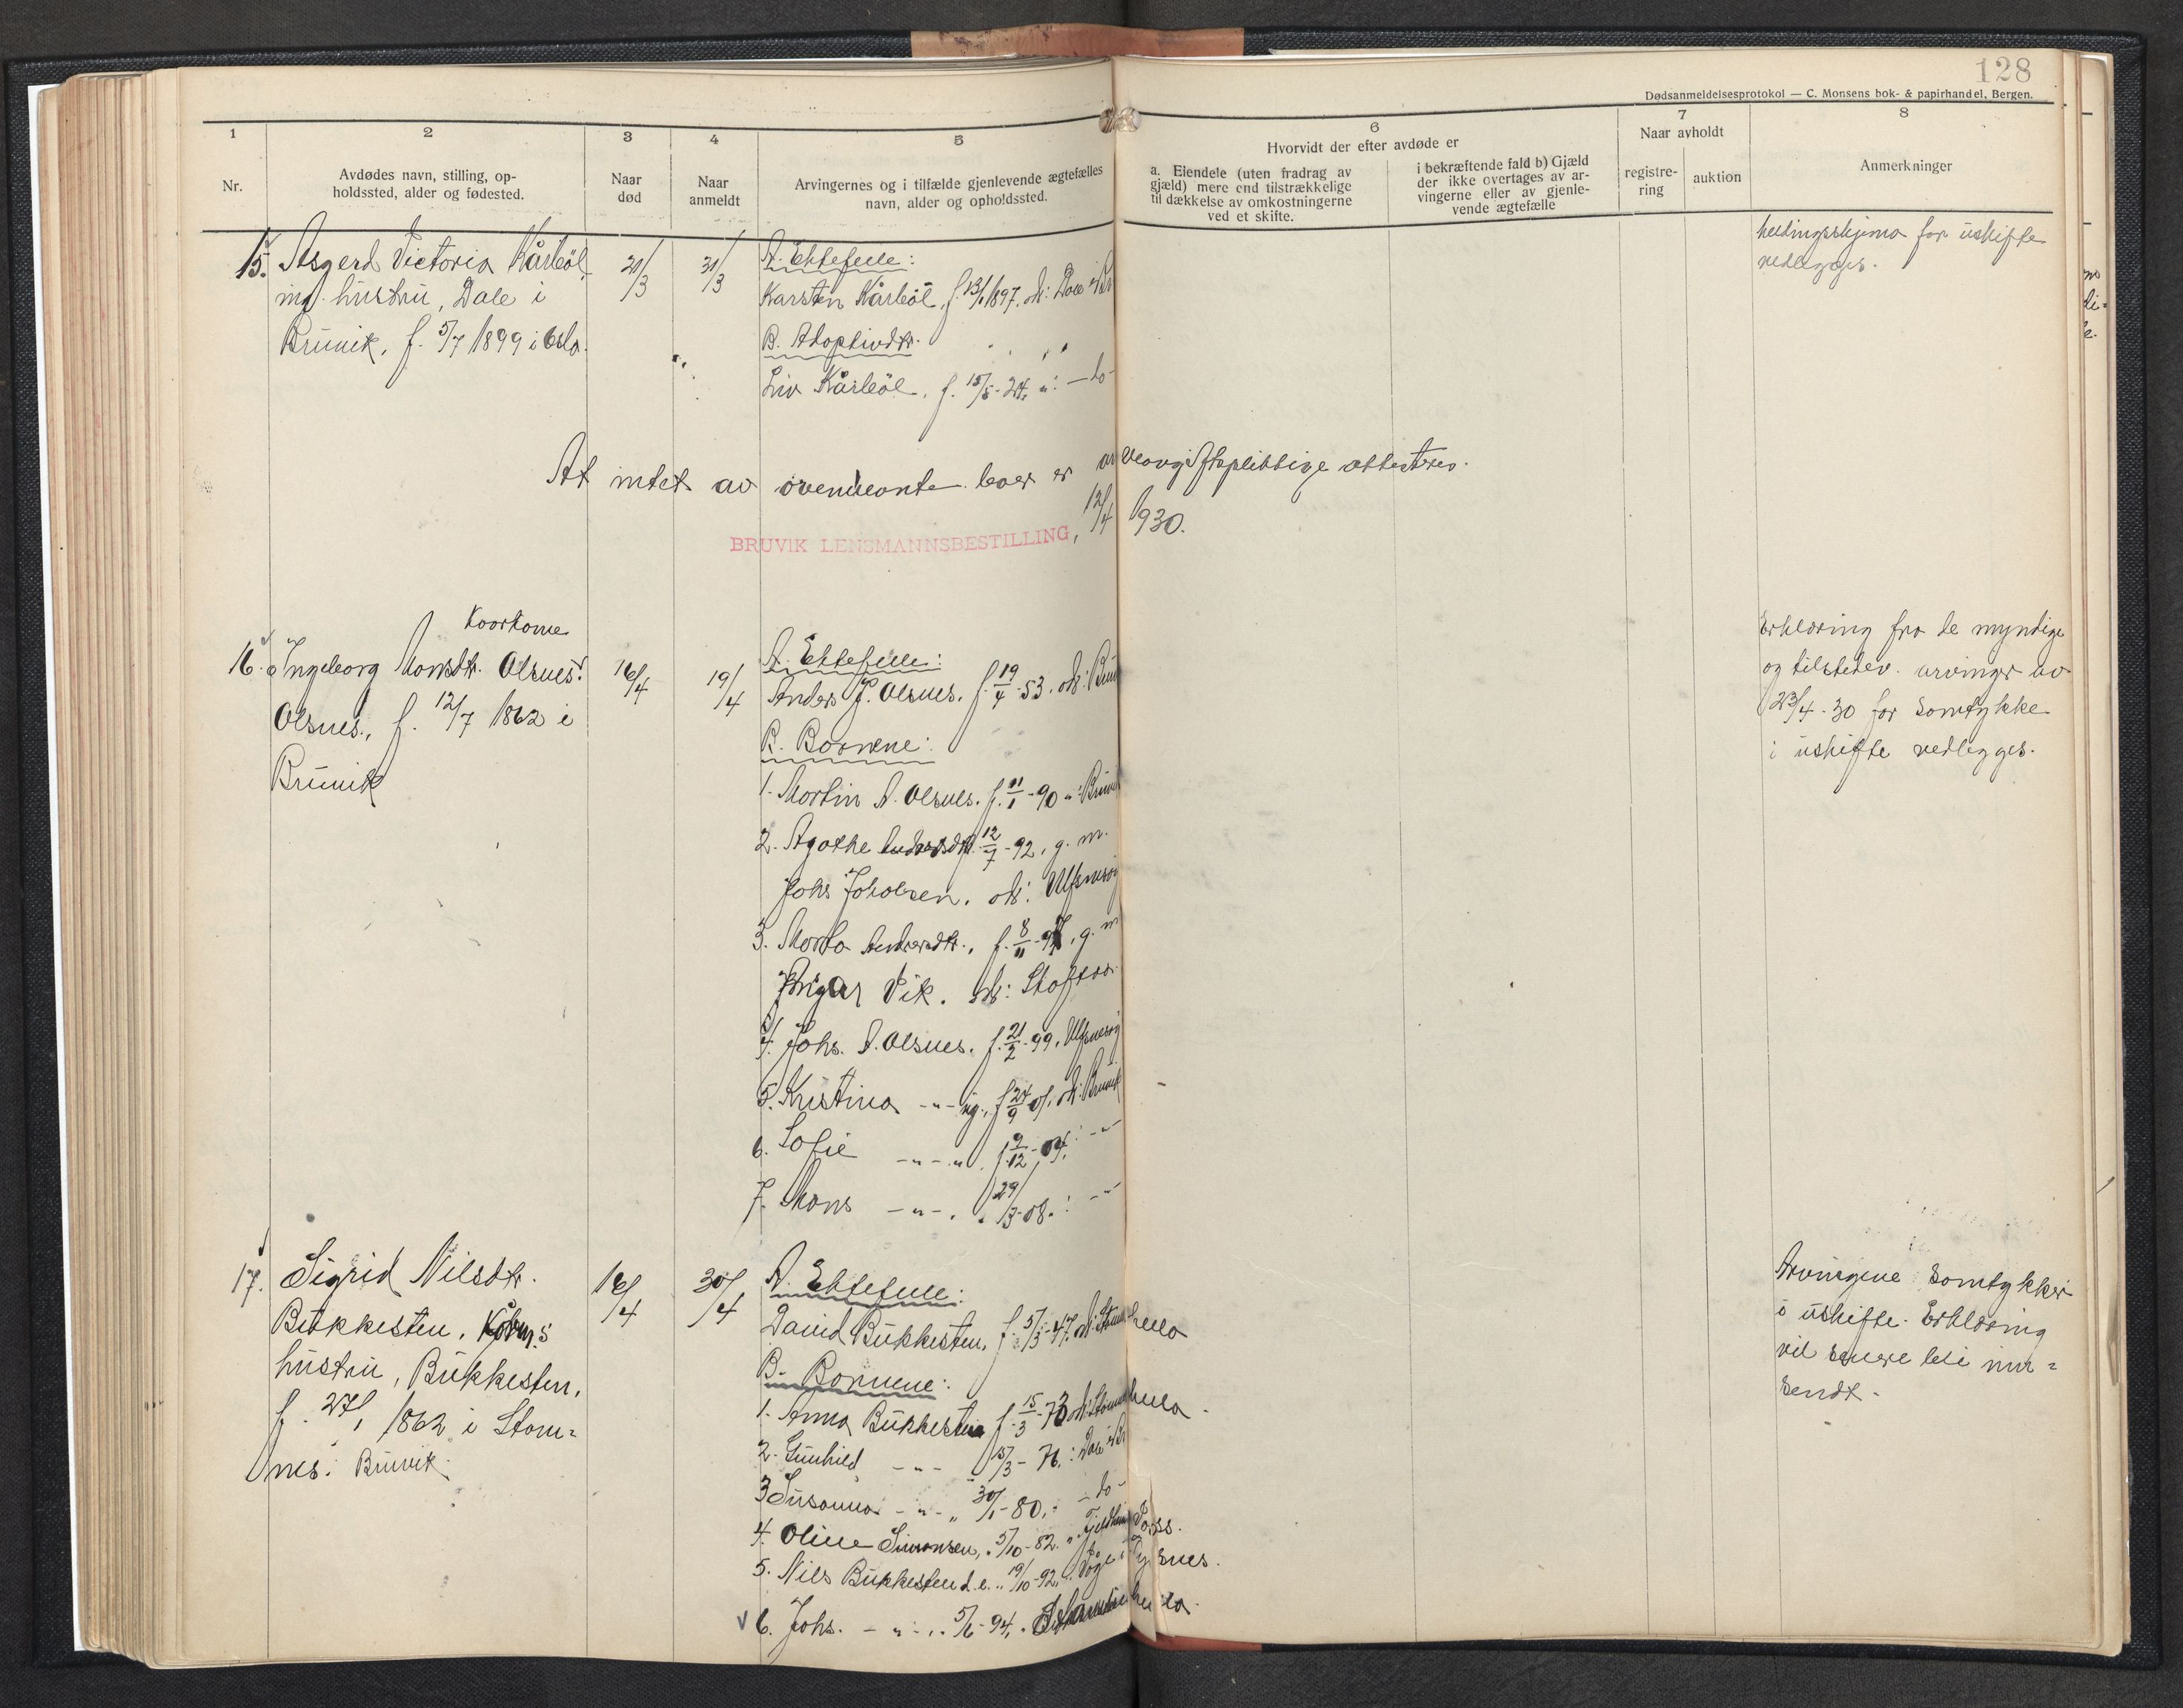 128
Dødsanmeldelsesprotokol — C. Monsens bok- & papirhandel, Bergen.
1
2
3
4
5
6
7
8
Nr.
Avdødes navn, stilling, op-
holdssted, alder og fødested.
Naar
død
Naar
anmeldt
Arvingernes og i tilfælde gjenlevende ægtefælles
navn, alder og opholdssted.
Hvorvidt der efter avdøde er
a. Eiendele (uten fradrag av
gjæld) mere end tilstrækkelige
til dækkelse av omkostningerne
ved et skifte.
i bekræftende fald b) Gjæld
der ikke overtages av ar-
vingerne eller av gjenle-
vende ægtefælle
Naar avholdt
registre-
ring
auktion
Anmerkninger
heldingsskjema for uskifte
vedlegges.
15. Asgerd Victoria Kårbøl
ing. hustru, Dale i
Bruvik, f. 5/7 1899 i Oslo.
31/3
A. Ektefelle:
Karsten Kårbøl, f. 13/1 1897, ob: Dale i Br
B. Adoptivdtr.
Liv Kårbøl, f. 15/5-24, ": -do-
At intet av ovennevnte boer er arveavgiftspliktige attesteres.
BRUVIK LENSMANNSBESTILLING, 12/4 1930.
Koorkone
16. Ingeborg Monsdtr. Olsnes
Olsnes, f. 12/7 1862 i
Bruvik
16/4
19/4
A. Ektefelle:
Anders J. Olsnes, f. 19/4-53, ob: Bruv
B. Barnene:
1. Martin A. Olsnes, f. 11/1-90 ": Bruvik
2. Agathe Andersdtr. 12/7-92, g. m.
Johs Jakobsen, ob:
3. Marta Andersdtr., f. 8/11-97, g. m
Vik, ob:
4. Johs. A. Olsnes, f. 21/2-99,
5. Kristina -"- ug., f. 24/9-01, ob: Bruvik
6. Sofie -"- " f. 9/12-04: -"-
7. Mons -"- " 29/3-08: -"-
Erklæring fra de myndige
og tilstedev. arvinger av
23/4-30 for samtykke
i uskifte vedlegges.
17. Sigrid Nilsdtr.
Bukkesten, Kårm.s
hustru, Bukkesten,
f. 27/1 1862 i Stam=
nes. Bruvik.
16/4
30/4
A. Ektefelle:
David Bukkesten, f. 5/3-47, ob: Stamshella
B. Barnene:
1. Anna Bukkesten f. 15/3-73 ob: Stamshella
2. Gunhild -"- 15/3-76: Dale i Br
3 Susanna -"- " 30/1-80: -do-
4. Oline Simonsen, " 5/10-82 " Voss.
5. Nils Bukkesten d. e. " 19/10-92, " Våge i Tysnes.
6. Johs. -"- " 5/6-94,
Arvingene samtykker
i uskifte. Erklæring
vil senere bli inn=
sendt.